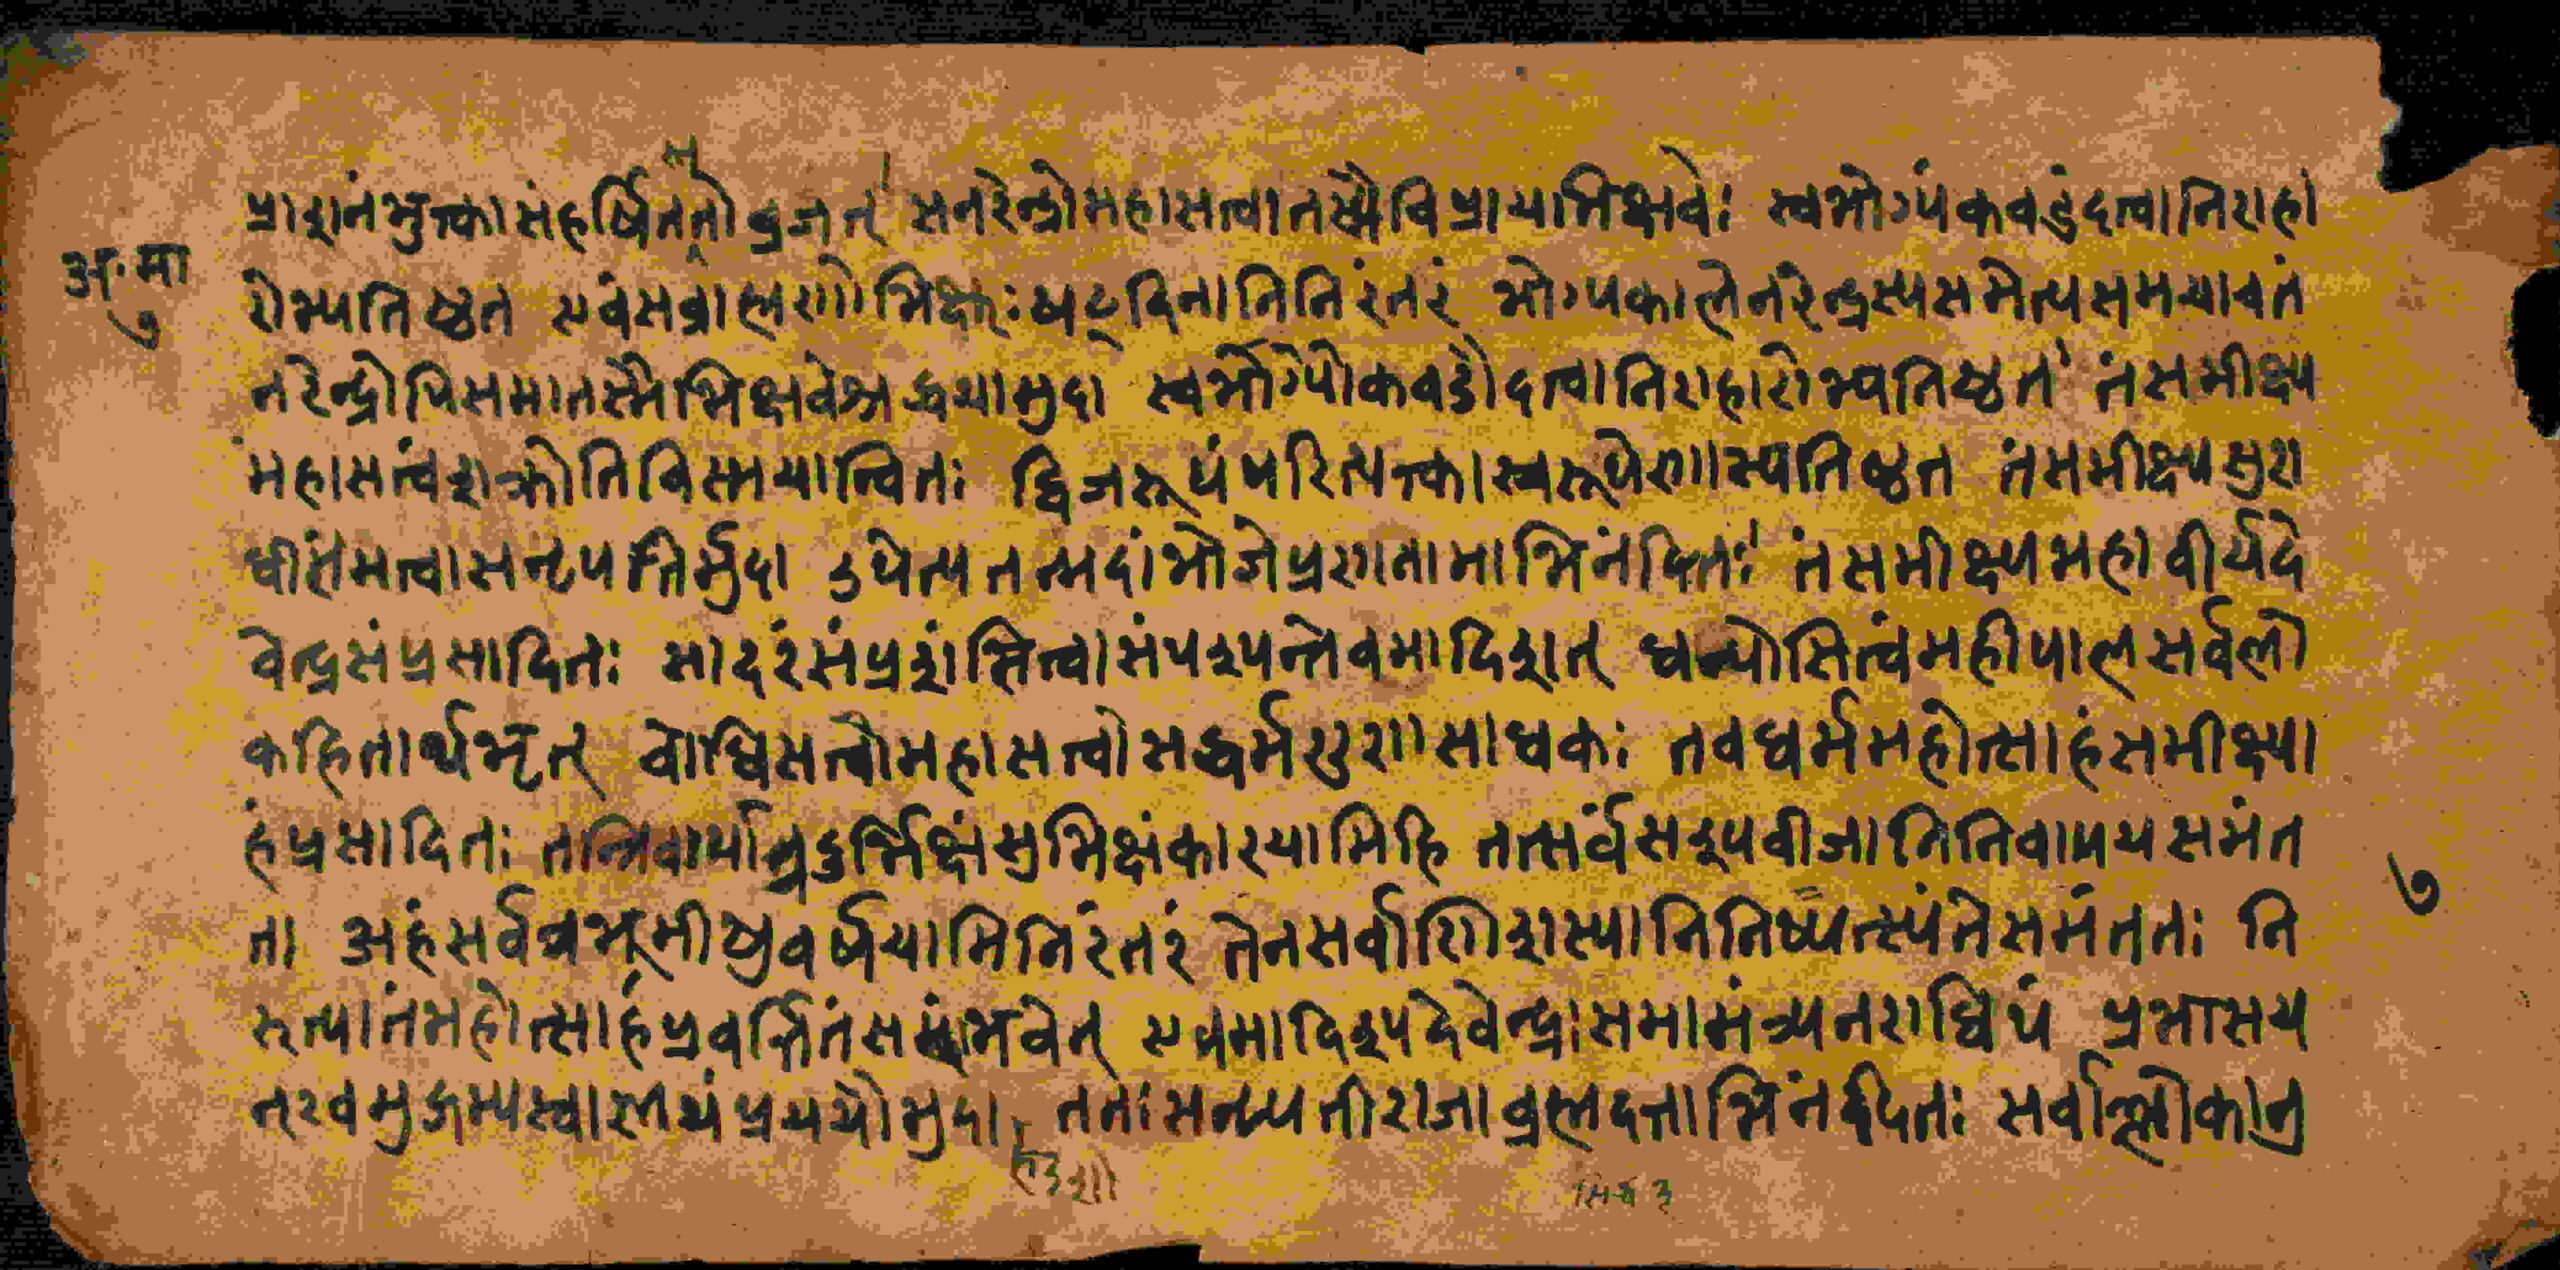 प्राशनंभुक्त्कासंहर्षितततोव्रजेत् सनरेन्द्रोमहासत्वातस्मैविप्रायभिक्षवेः स्वभोग्यंकवडंदत्वानिराहा
अ॰मा
७
रोभ्यतिष्ठत एवंसव्राह्मणोभिक्षुःषट्दिनानिनिरंतरं भोग्यकालेनरेन्द्रस्यसमेत्यसमयाचत
नरेन्द्रोपिसमातस्मैभिक्षवेश्रद्धयामुदा स्वभोग्यंकवडौदत्वानिराहारोभ्यतिष्ठत तंसमीक्ष्य
महासत्वंशक्रोतिविस्मयान्वितः द्विजरूपंपरित्यक्त्कास्वरूपेणाभ्यतिष्ठत तंसमीक्ष्यसुरा
धीशंमत्वासनृपतिर्मुदा उपेत्यतत्पदांभोजेप्रणतामाभिनंदितः तंसमीक्ष्यमहावीर्यदे
वेन्द्रसंप्रसादितः सादरंसंप्रशंसित्वासंपश्यन्नेवमादिशत् धन्योसित्वंमहीपालसर्वलो
कहितार्थभृत् वोधिसत्वोमहासत्वोसद्धर्मगुणसाधकः तवधर्ममहोत्साहंसमीक्ष्या
हंप्रसादितः तन्निवार्यात्रदुर्भिक्षंसुभिक्षंकारयामिहि तत्सर्वंसश्यवीजानिनिवापयसमंत
ता अहंसर्वत्रभूमीषुवर्षयामिनिरंतरं तेनसर्वाणिशस्यानिनिष्पत्स्यंतेसमंततः नि
रुत्पातंमहोत्साहंप्रवर्त्तितंसमंभवेत् एवमादिश्यदेवेन्द्रःसमामंत्र्यनराधिपं प्रभासय
न्खमुद्गम्यस्वालयंप्रययौमुदा ततःसनृपतीराजाव्रह्मदत्ताभिनंदितः सर्वाल्लोकानु
७